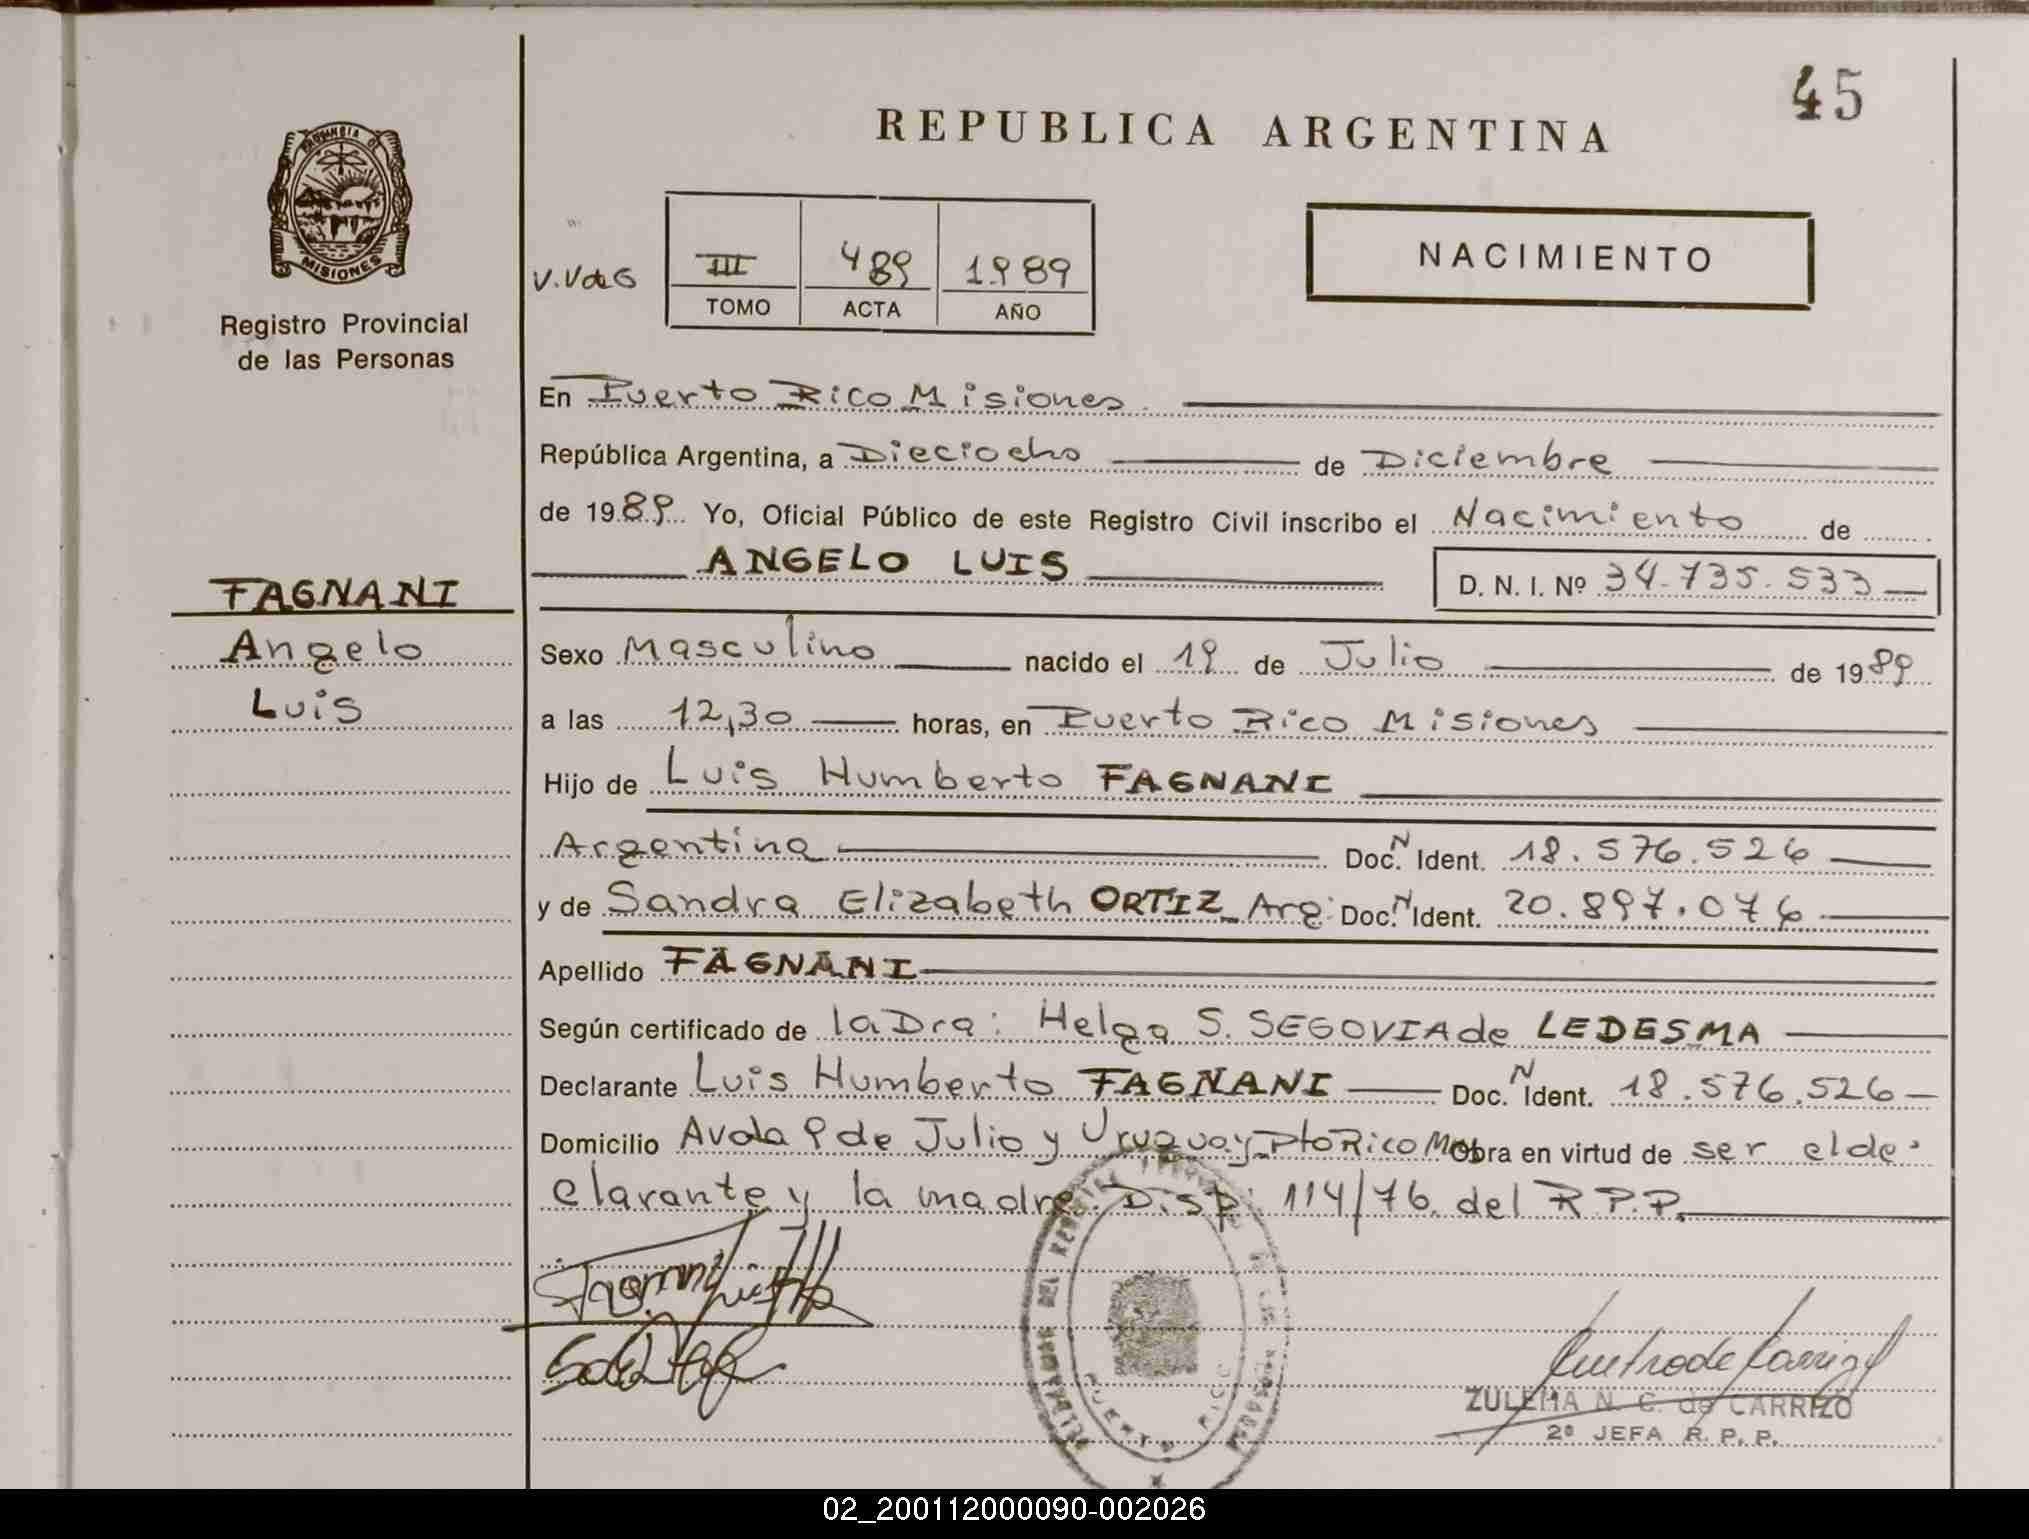 45
REPUBLICA ARGENTINA
PROVINCIA DE
MISIONES
Registro Provincial
de las Personas
V.VdeG
III 489 1989
TOMO ACTA AÑO
NACIMIENTO
En Puerto Rico Misiones
República Argentina, a Dieciocho de Diciembre
de 1989 Yo, Oficial Público de este Registro Civil inscribo el Nacimiento de
ANGELO LUIS
D. N. I. Nº 34.735.533
FAGNANI
Angelo
Luis
Sexo Masculino nacido el 19 de Julio de 1989
a las 12,30 horas, en Puerto Rico Misiones
Hijo de Luis Humberto FAGNANI
Argentina Doc. N Ident. 18.576.526
y de Sandra Elizabeth ORTIZ Arg. Doc. N Ident. 20.897.076
Apellido FAGNANI
Según certificado de la Dra: Helga S. SEGOVIA de LEDESMA
Declarante Luis Humberto FAGNANI Doc. N Ident. 18.576.526
Domicilio Avda 9 de Julio y Uruguay Pto Rico Mnes Obra en virtud de ser el de-
clarante y la madre. Disp: 114/76. del R.P.P.
DEL REGISTRO PROVINCIAL DE LAS PERSONAS
PUERTO RICO
ZULEMA N. C. de CARRIZO
2º JEFA R. P. P.
02_200112000090-002026